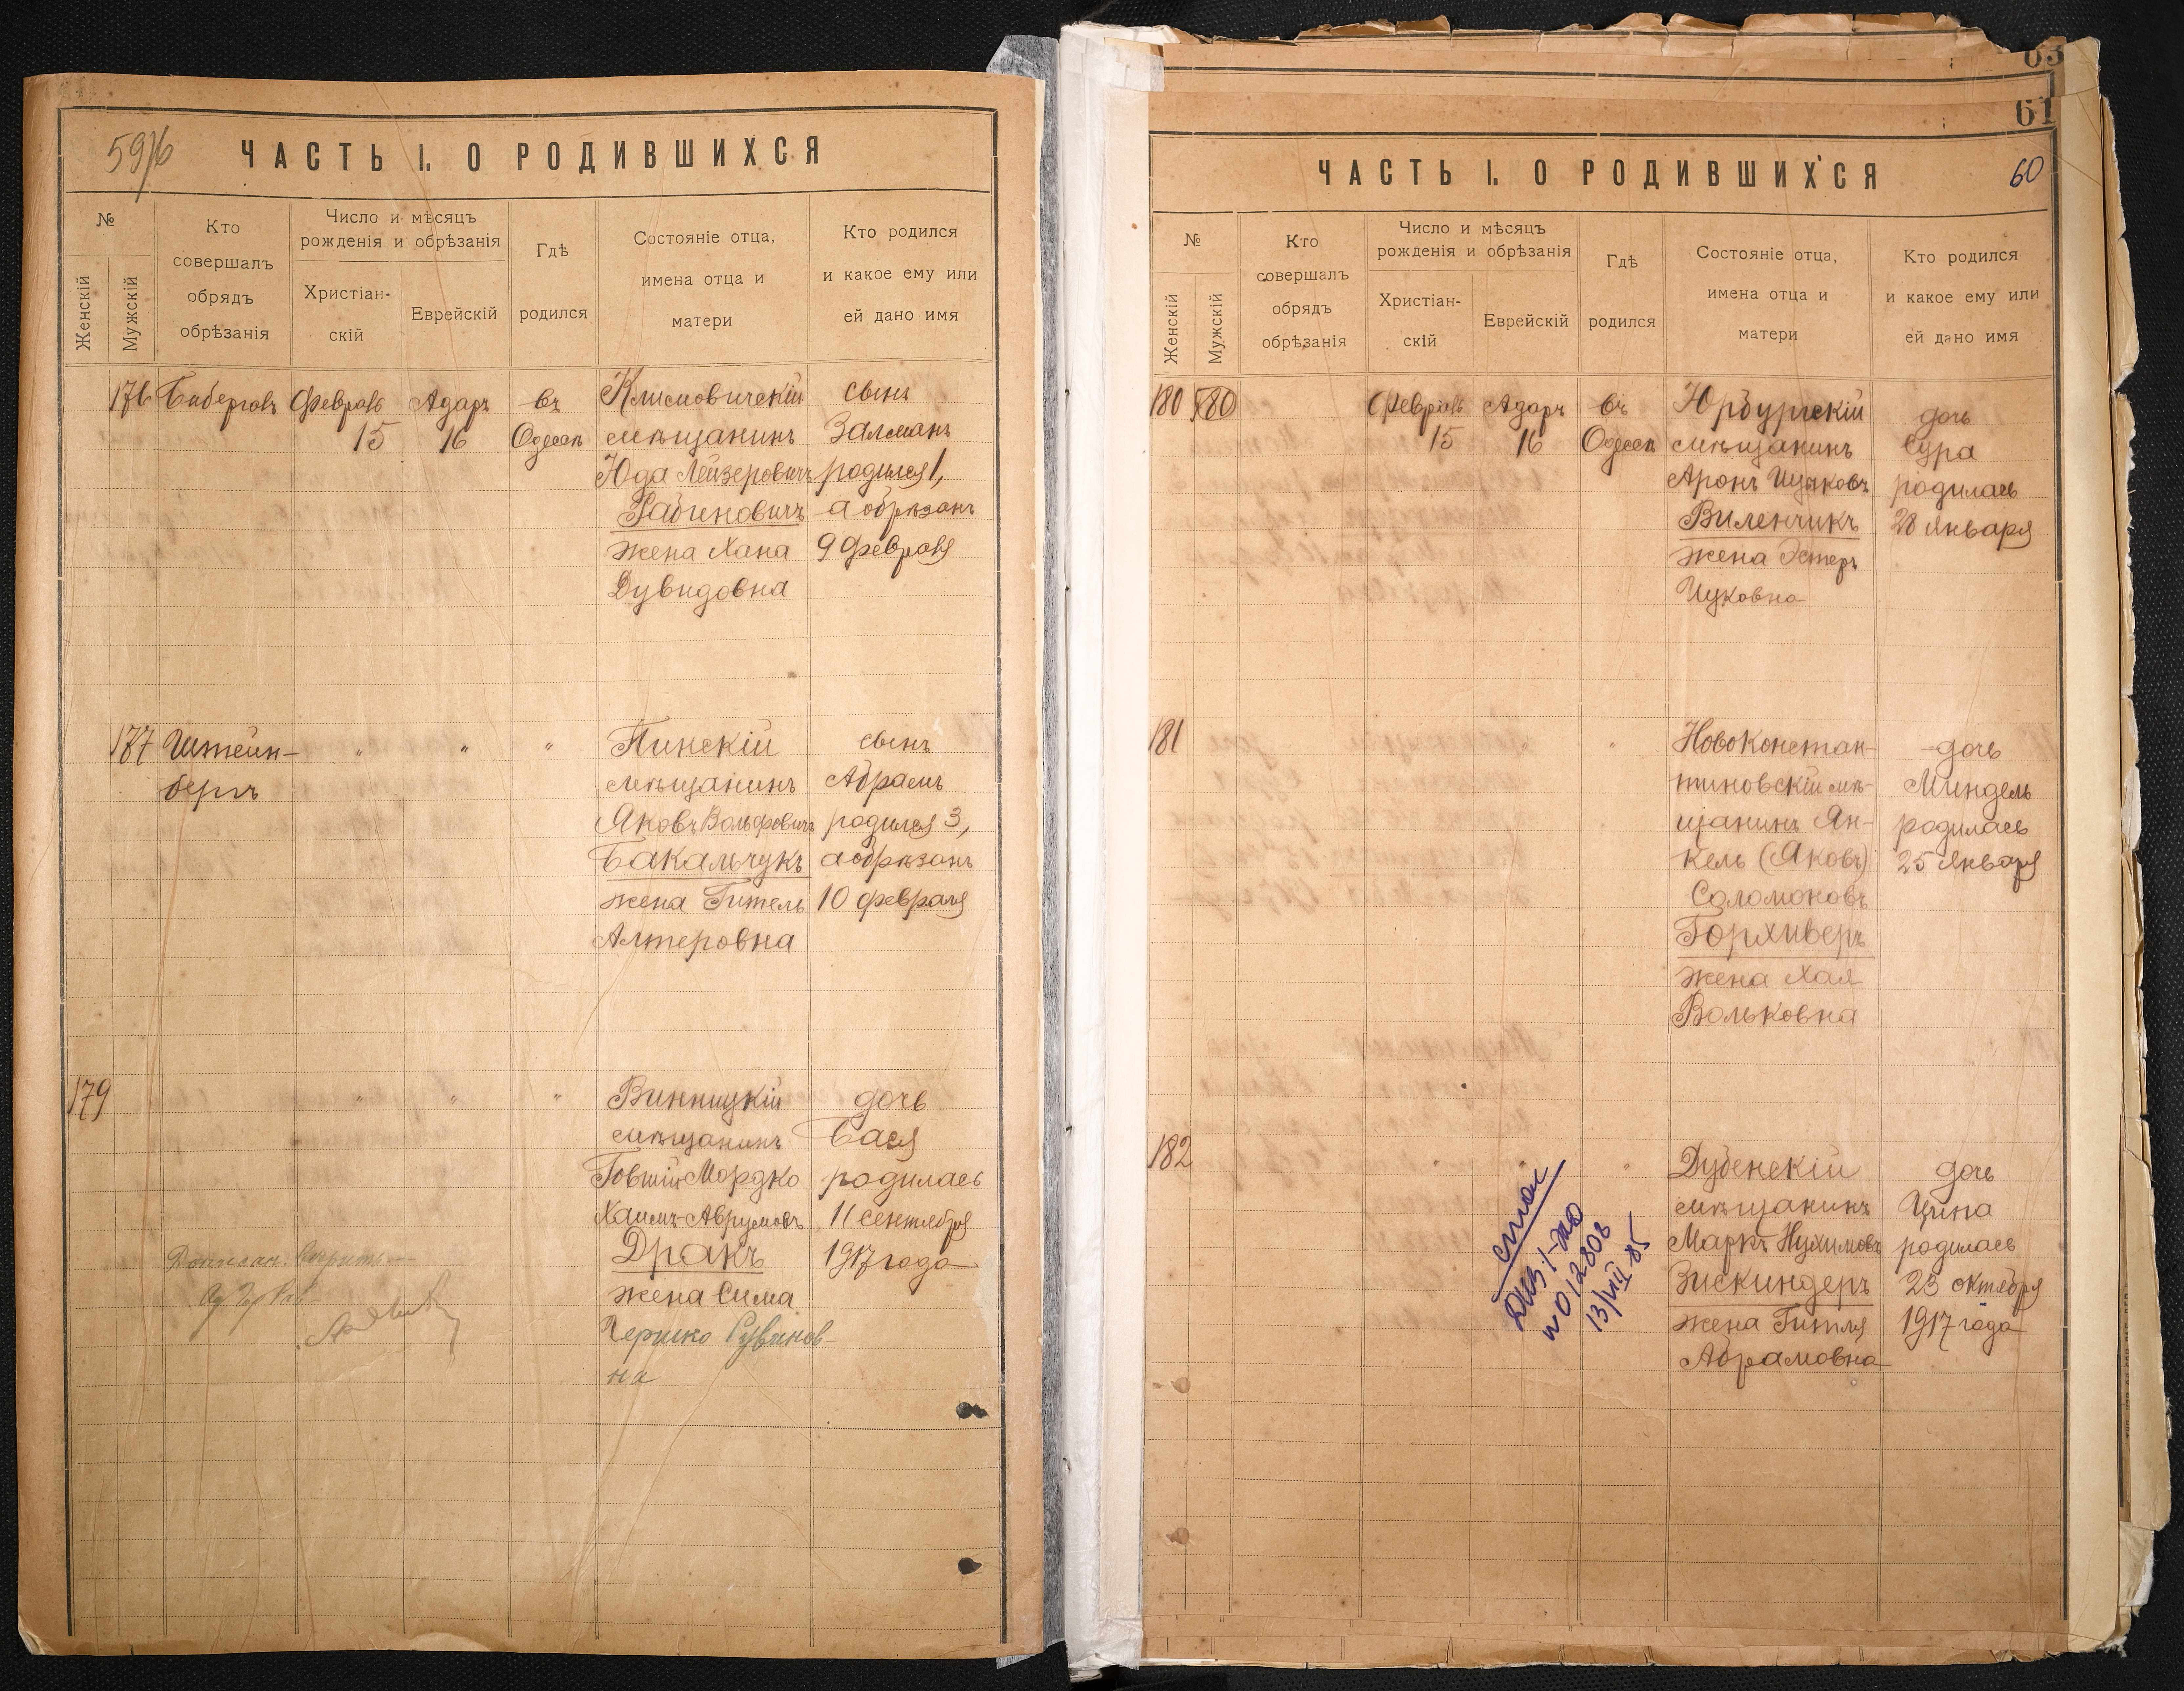 59/6
ЧАСТЬ I. О РОДИВШИХСЯ
№
Женскій
Мужскій
Кто
совершалъ
обрядъ
обрѣзанія
Число и мѣсяцъ
рожденія и обрѣзанія
Христіан-
скій
Еврейскій
Гдѣ
родился
Состояніе отца,
имена отца и
матери
Кто родился
и какое ему или
ей дано имя
176
Февраль
15
Адаръ
16
въ
Одессѣ
Климовичскій
мѣщанинъ
Юда Лейзеровичъ
Рабиновичъ
жена Хана
Дувидовна
сынъ
Залманъ
родился 1,
а обрѣзанъ
9 февраля
177
Штейн-
бергъ
"
"
"
Пинскій
мѣщанинъ
Яковъ Вольфовичъ
Бакальчукъ
жена Гитель
Алтеровна
сынъ
Абрамъ
родился 3,
а обрѣзанъ
10 февраля
179
"
"
"
Винницкій
мѣщанинъ
Мордко
Хаимъ-Аврумовъ
Дракъ
жена Сима
Рувинов-
на
дочь
Бася
родилась
11 сентября
1917 года
63
61
60
ЧАСТЬ I. О РОДИВШИХСЯ
№
Женскій
Мужскій
Кто
совершалъ
обрядъ
обрѣзанія
Число и мѣсяцъ
рожденія и обрѣзанія
Христіан-
скій
Еврейскій
Гдѣ
родился
Состояніе отца,
имена отца и
матери
Кто родился
и какое ему или
ей дано имя
180
180
Февраль
15
Адаръ
16
въ
Одессѣ
Юрбургскій
мѣщанинъ
Аронъ Ицковъ
Виленчикъ
жена Эстеръ
Ицковна
дочь
Сура
родилась
28 января
181
"
"
Новоконстан-
тиновскій мѣ-
щанинъ Ян-
кель (Яковъ)
Соломоновъ
Горхиверъ
жена Хая
Вольковна
дочь
Миндель
родилась
25 января
182
"
"
"
Дубенскій
мѣщанинъ
Маркъ Нухимовъ
Зискиндеръ
жена Гитля
Абрамовна
дочь
Ципа
родилась
23 октября
1917 года
13/VIII-85